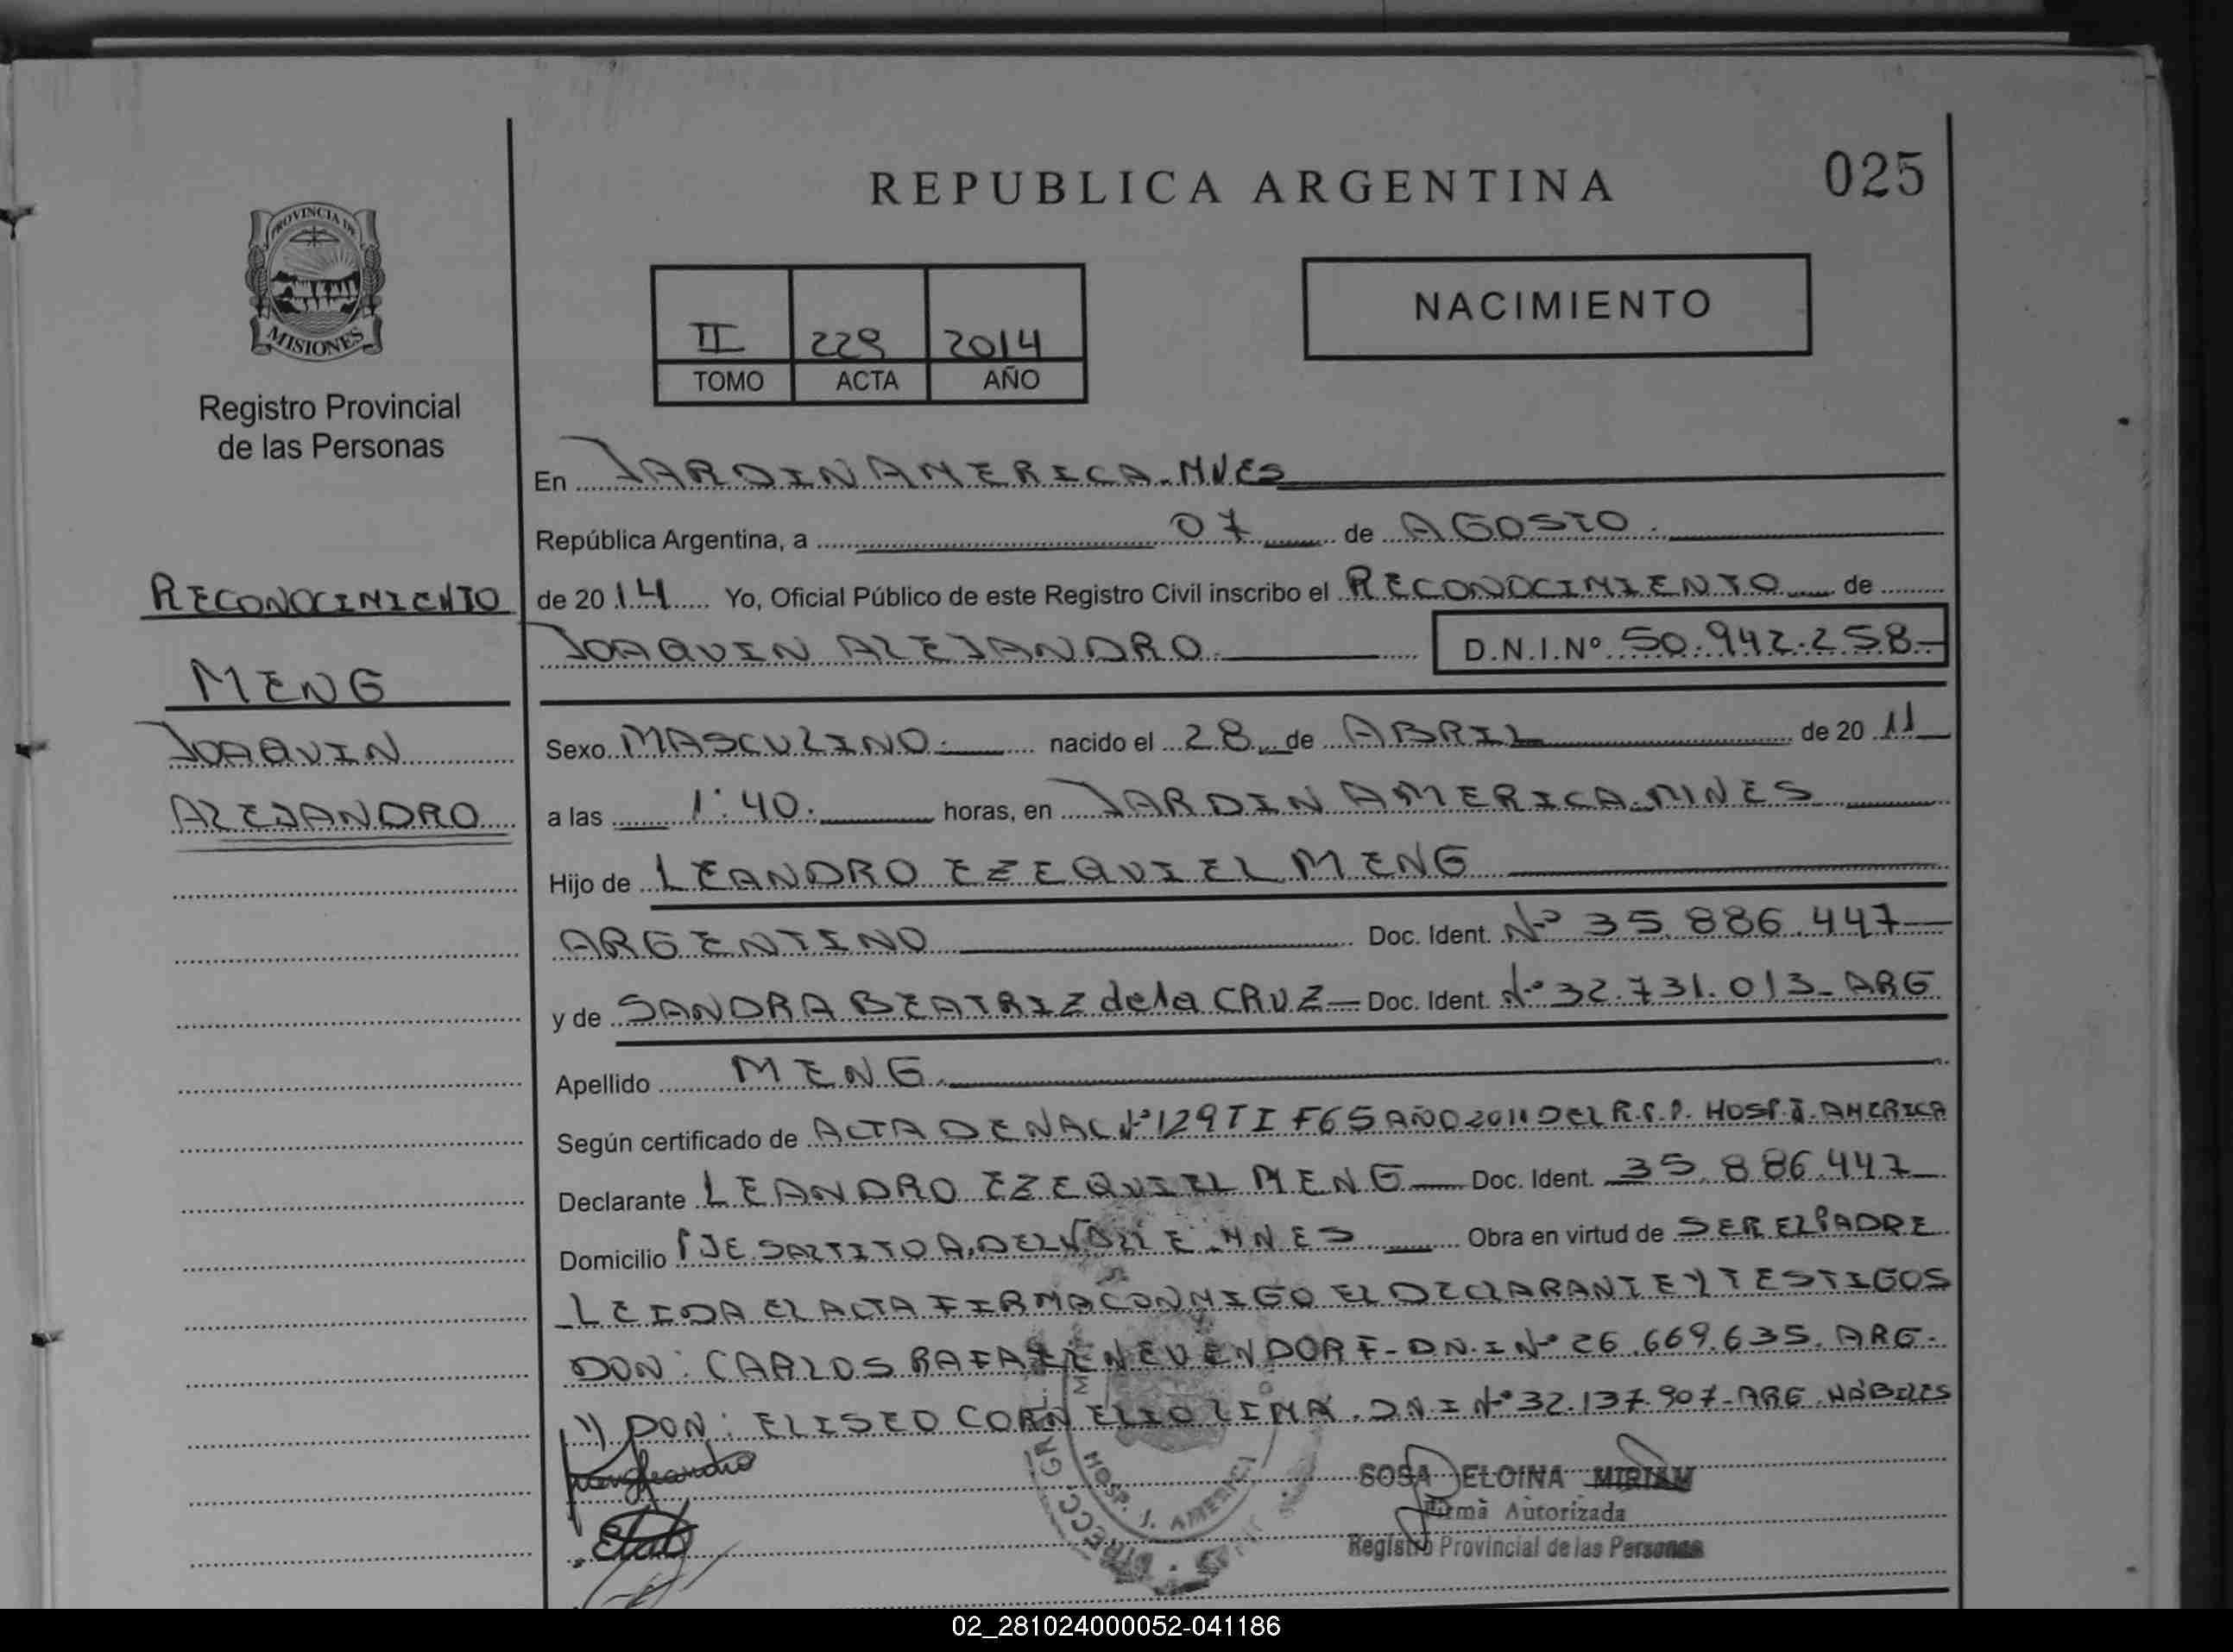 REPUBLICA ARGENTINA
025
PROVINCIA DE
MISIONES
Registro Provincial
de las Personas
II 229 2014
TOMO ACTA AÑO
NACIMIENTO
En JARDIN AMERICA. MNES
República Argentina, a 07 de AGOSTO.
RECONOCIMIENTO
de 2014 Yo, Oficial Público de este Registro Civil inscribo el RECONOCIMIENTO de
JOAQUIN ALEJANDRO. D.N.I.Nº 50.942.258-
MENG
JOAQUIN
ALEJANDRO
Sexo MASCULINO. nacido el 28 de ABRIL de 2011
a las 1:40. horas, en JARDIN AMERICA. MNES
Hijo de LEANDRO EZEQUIEL MENG
ARGENTINO Doc. Ident. Nº 35.886.447
y de SANDRA BEATRIZ de la CRUZ Doc. Ident. Nº 32.731.013- ARG
Apellido MENG.
Según certificado de ACTA DE NAC Nº 129 T I F 65 AÑO 2011 DEL R.P.P. HOSP. J. AMERICA
Declarante LEANDRO EZEQUIEL MENG Doc. Ident. 35.886.447
Domicilio PJE SALTITO A. DEL VALLE. MNES Obra en virtud de SER EL PADRE
LEIDA EL ACTA FIRMA CONMIGO EL DECLARANTE Y TESTIGOS
DON: CARLOS RAFAEL NEUENDORF- D.N.I Nº 26.669.635. ARG.
Y) DON: ELISEO CORNELIO LIMA. D.N.I Nº 32.137.907- ARG. HÁBILES
HOSP. J. AMERICA
SOSA ELOINA MIRIAM
Firma Autorizada
Registro Provincial de las Personas
02_281024000052-041186